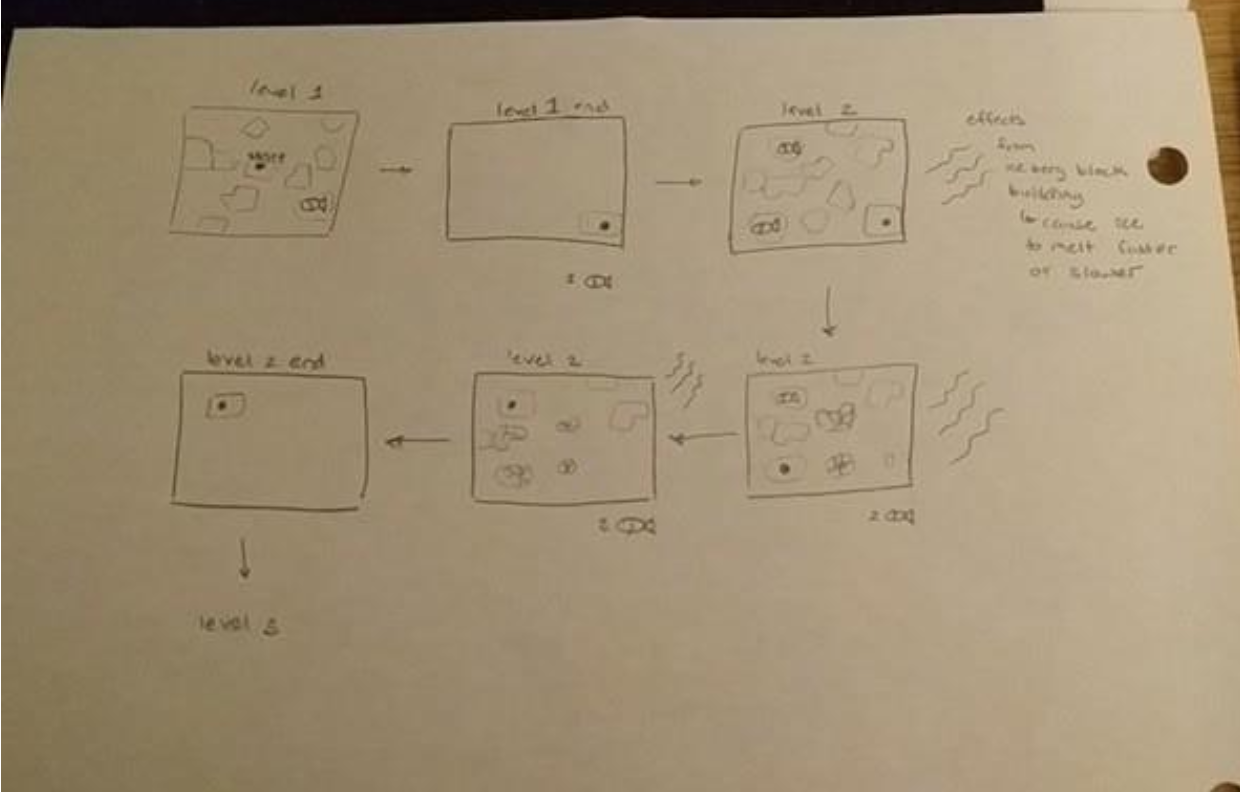 level 1
level 1 end
level 2
effects
from
block
building
cause ice
to melt faster
or slower
level 2 end
level 2
level 2
2
2
level 3